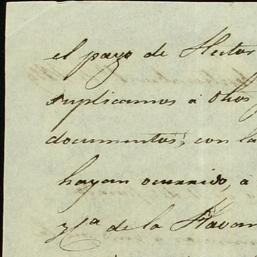 el pago de fletes
suplicamos á otros
documentos, con la
hayan ocurrido, á
de la Havan